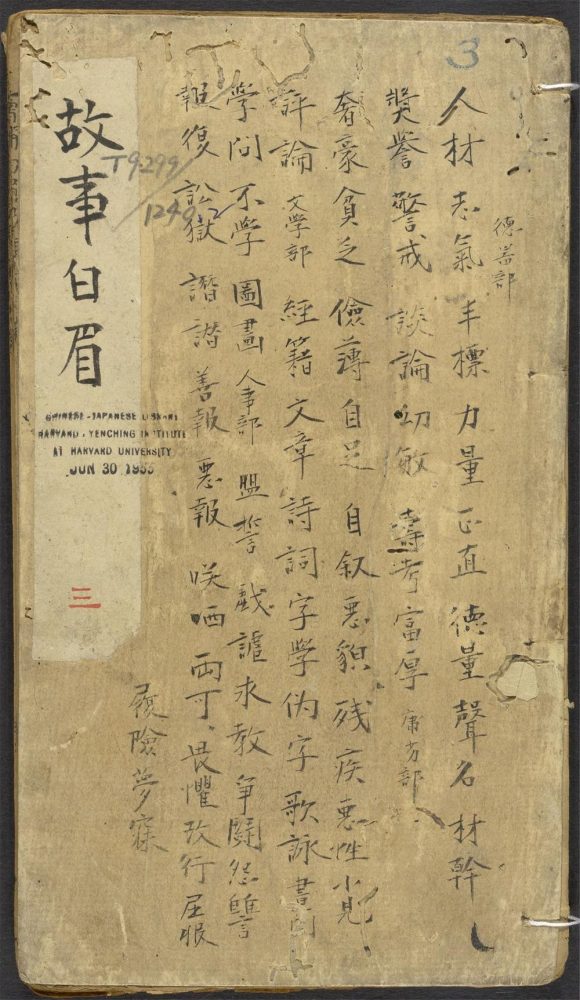 3
德器部
人材 志氣 丰標 力量 正直 德量 聲名 材幹
獎譽 警戒 談論 幼敏 壽考 富厚 庸劣部
奢豪 貧乏 儉薄 自足 自叙 惡貌 殘疾 惡性 小兒
評論 文學部 經籍 文章 詩詞 字學 伪字 歌詠 書問
學问 不學 圖畫 人事部 盟誓 戯謔 求教 争鬪 怨讐
報復 訟獄 諧 善報 惡報 咲哂 両可 畏懼 改行 屈服
履險 夢寐
故事白眉
T9299
1249
CHINESE-JAPANESE LIBRARY
HARVARD-YENCHING INSTITUTE
AT HARVARD UNIVERSITY
JUN 30 1955
三